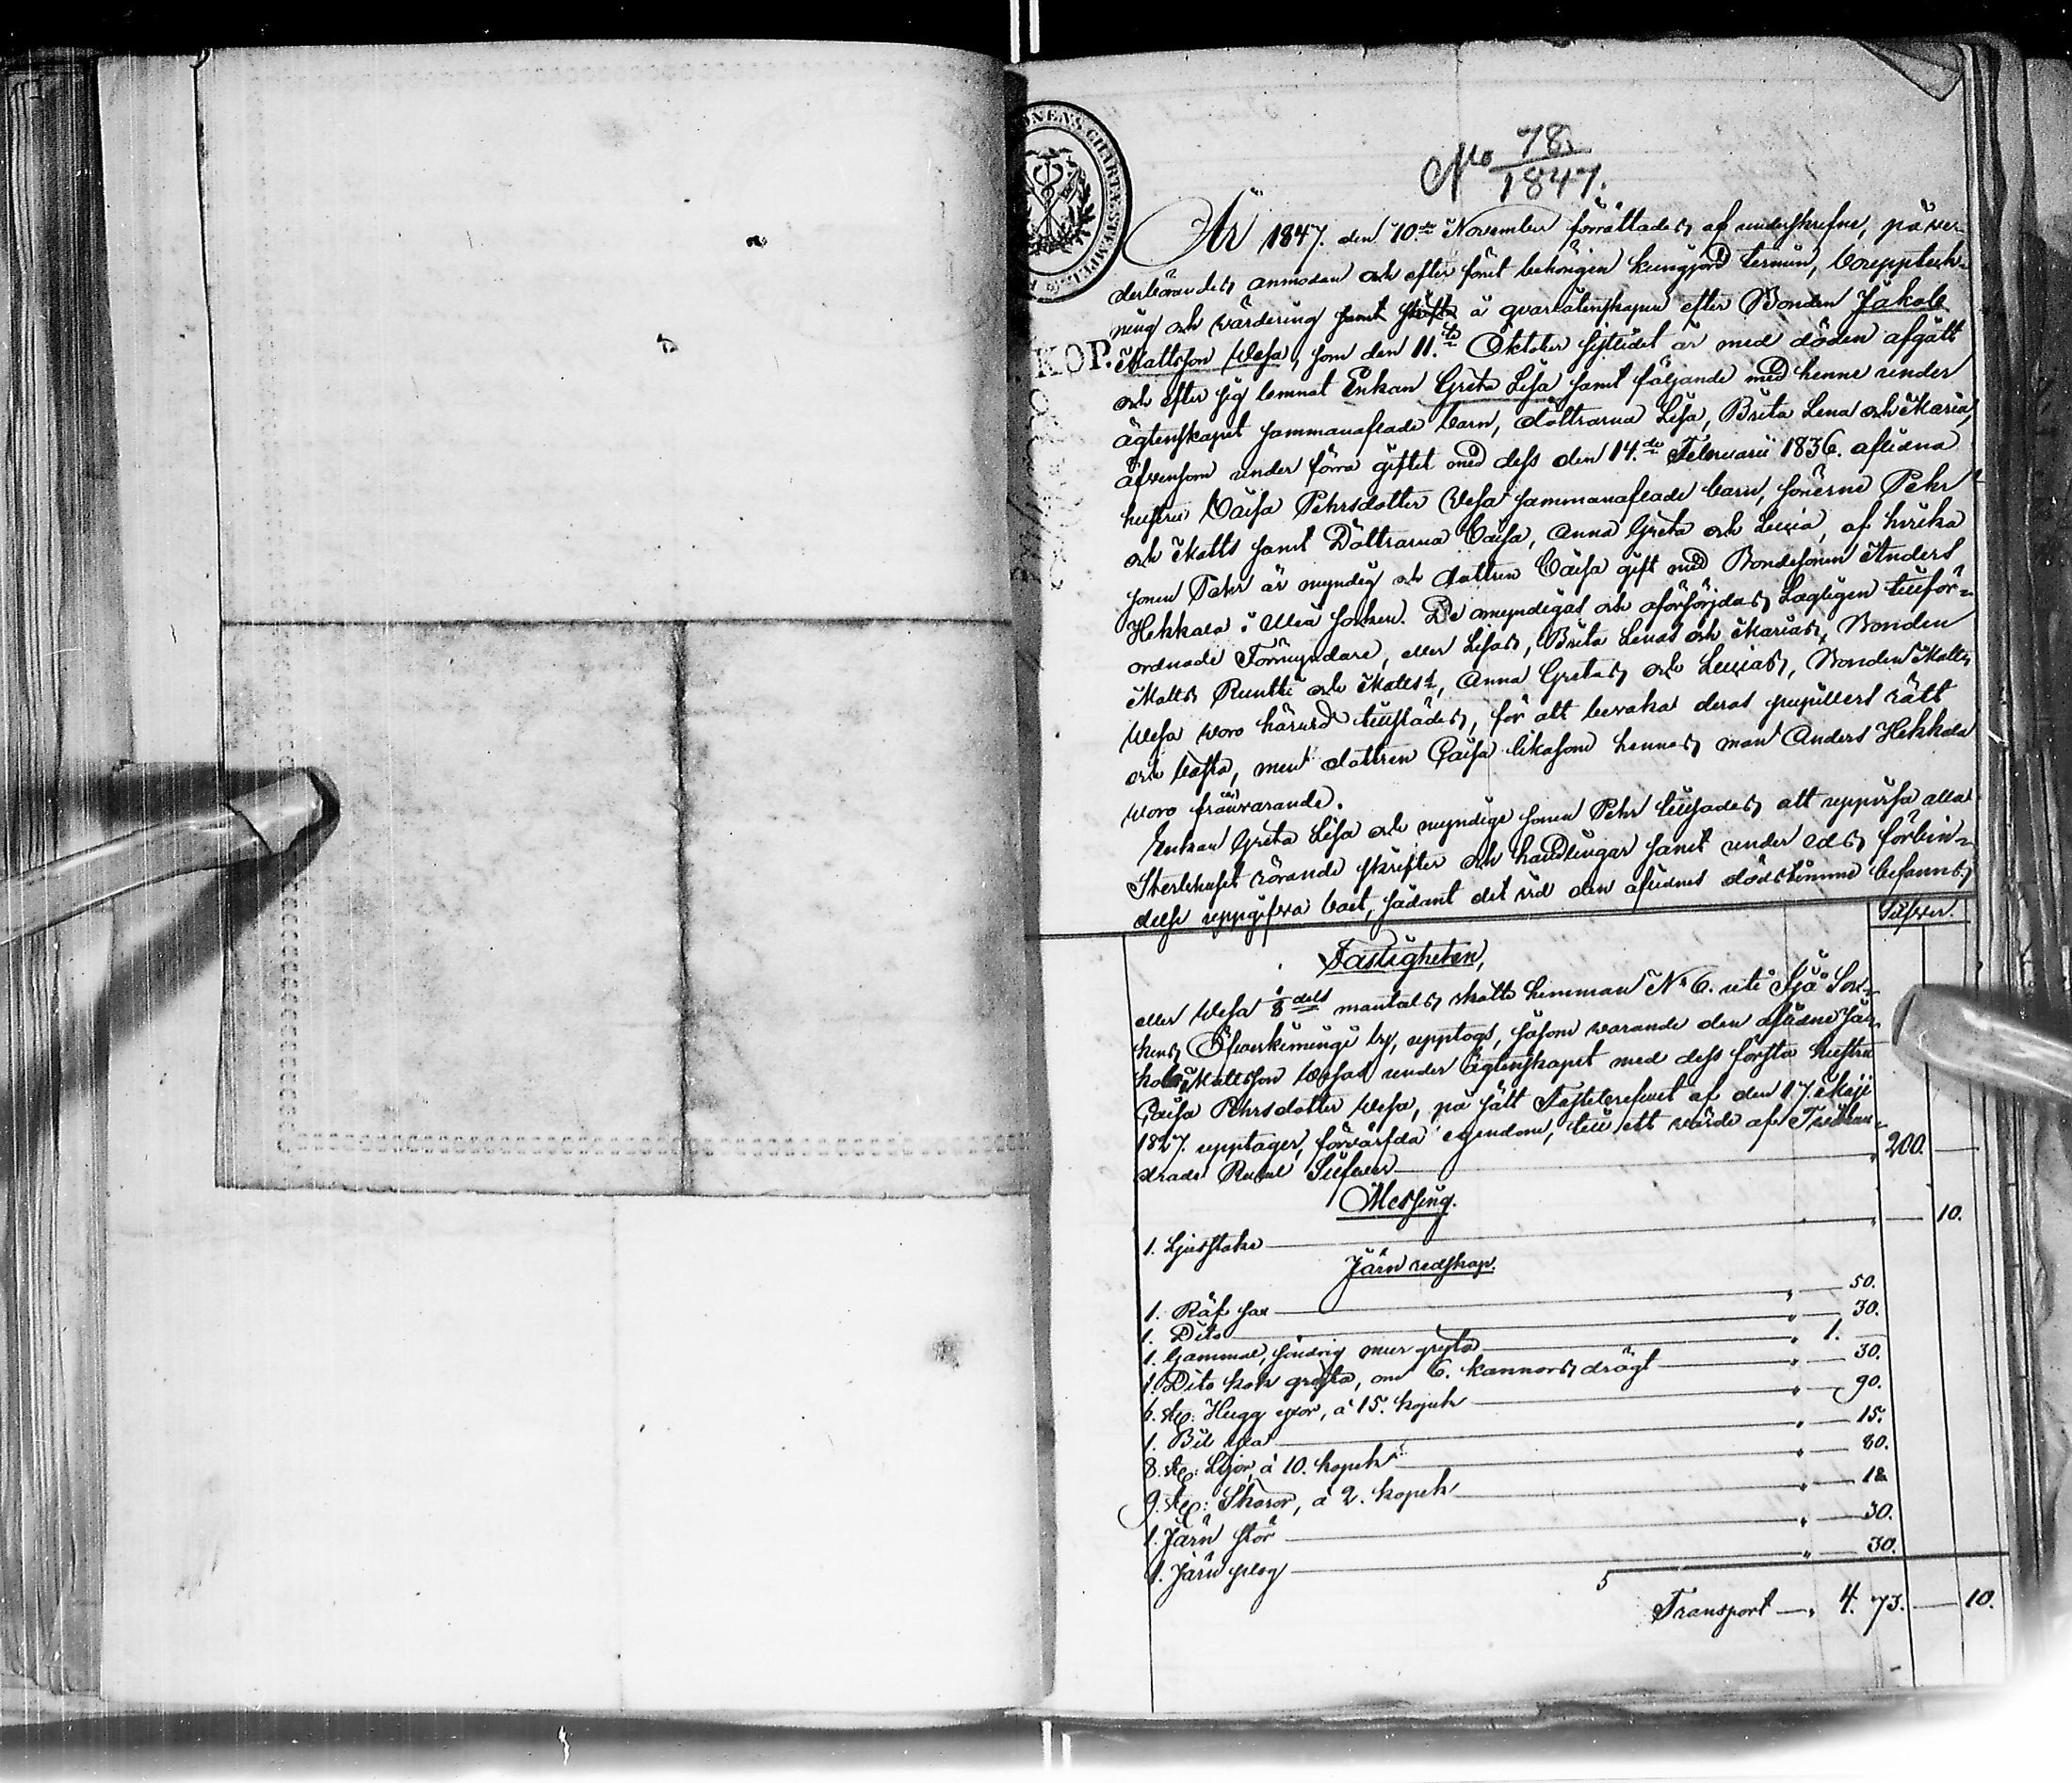 No 78/1847.
År 1847. den 10.de November förrättades af underskrefne, på ve-
derbörandes anmodan och efter förut behörigen kungjord termin, boupptek-
ning och värdering samt skifte å qvarlåtenskapen efter Bonden Jakob
KOP.
Mattsson Wesa, som den 11.te Oktober sistlidet år med döden afgått
och efter sig lemnat Enkan Greta Lisa samt följande med henne under
ägtenskapet sammanaflade barn, döttrarna Lisa, Brita Lena och Maria,
äfvensom under förra giftet med dess den 14.de Februarii 1836. aflidna
hustru Caisa Pehrsdotter Wesa sammanaflade barn, sönerne Pehr
och Matts samt Döttrarna Caisa, Anna Greta och Lucia, af hvilka
sonen Pehr är myndig och dottren Caisa gift med Bondesonen Anders
Hekkala i Uleå socken. De omyndigas och oförsörjdas lagligen tillför-
ordnade Förmyndare, eller Lisas, Brita Lenas och Marias, Bonden
Matts Runtti och Matts's, Anna Gretas och Lucias, Bonden Matts
Wesa voro härvid tillstädes, för att bevaka deras pupillers rätt
och bästa, men dottren Caisa likasom hennes man Anders Hekkala
voro frånvarande.
Enkan Greta Lisa och myndige sonen Pehr tillsades att uppvisa alla
Sterbhuset rörande skrifter och handlingar samt under eds förbin-
delse uppgifva boet, sådant det vid den aflidnes dödstimme befanns,
Silfver.
Fastigheten,
eller Wesa 1/8 dels mantals skatte hemman No 6. uti Ijå Soc-
kens Öfverkiminge by, upptogs, såsom varande den aflidne Ja-
kob Mattsson Wesas under ägtenskapet med dess första hustru
Caisa Pehrsdotter Wesa, på sätt Fastebrefvet af den 17. Maji
1827. upptager, förvärfda egendom, till ett värde af Tvåhun-
drade Rubel Silfver 200.
Messing.
1. Ljusstake 10.
Järn redskap.
1. Räf sax 50.
1. Dito 30.
1. Gammal, söndrig mur gryta 1.
1. Dito kok gryta, om 6. kannors drägt 30.
6. st: Hugg yxor, á 15. kopek 90.
1. Bil yxa 15.
8. st: Lijor, á 10. kopek 80.
9. st: Skäror, á 2. kopek 18
1. Järn stör 30.
1. Järn plog 30.
5
Transport 4. 73. 10.